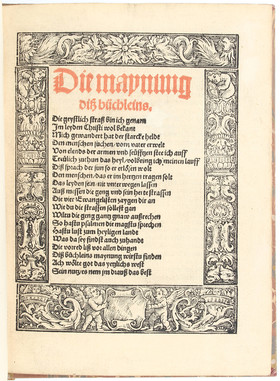 Die maynung
diß büchleins.
Die geystlich straß bin ich genant
Im leyden Christi wol bekant
Mich gewandert hat der starcke heldt
Den menschen zuchen vorn vater erwelt
Von elends der armen und sünßtzen steer ich auff
Treülich zuthun das heyl wolbring ich meinen lauff
Diß sprach der sun so er erlösen wolt
Den menschen das er im hertzen tragen solt
Das leyden sein nit unter wegen lassen
Auß müssen die geng und sein heyl te strassen
Die vier Evangelisten zaygen dir an
Wie du die strassen solt gan
Wiltu die geng gantz gnaw außrechen
So hastu psalmen die magstu sprechen
Hastu lust zum heyligen landt
Was da sey findst auch zuhandt
Die vorred liß vor allen dingen
Diß büchleins maynung wirstu finden
Ach wölte got das yetzlichs west
Sein nutz es nem jm drauß das best